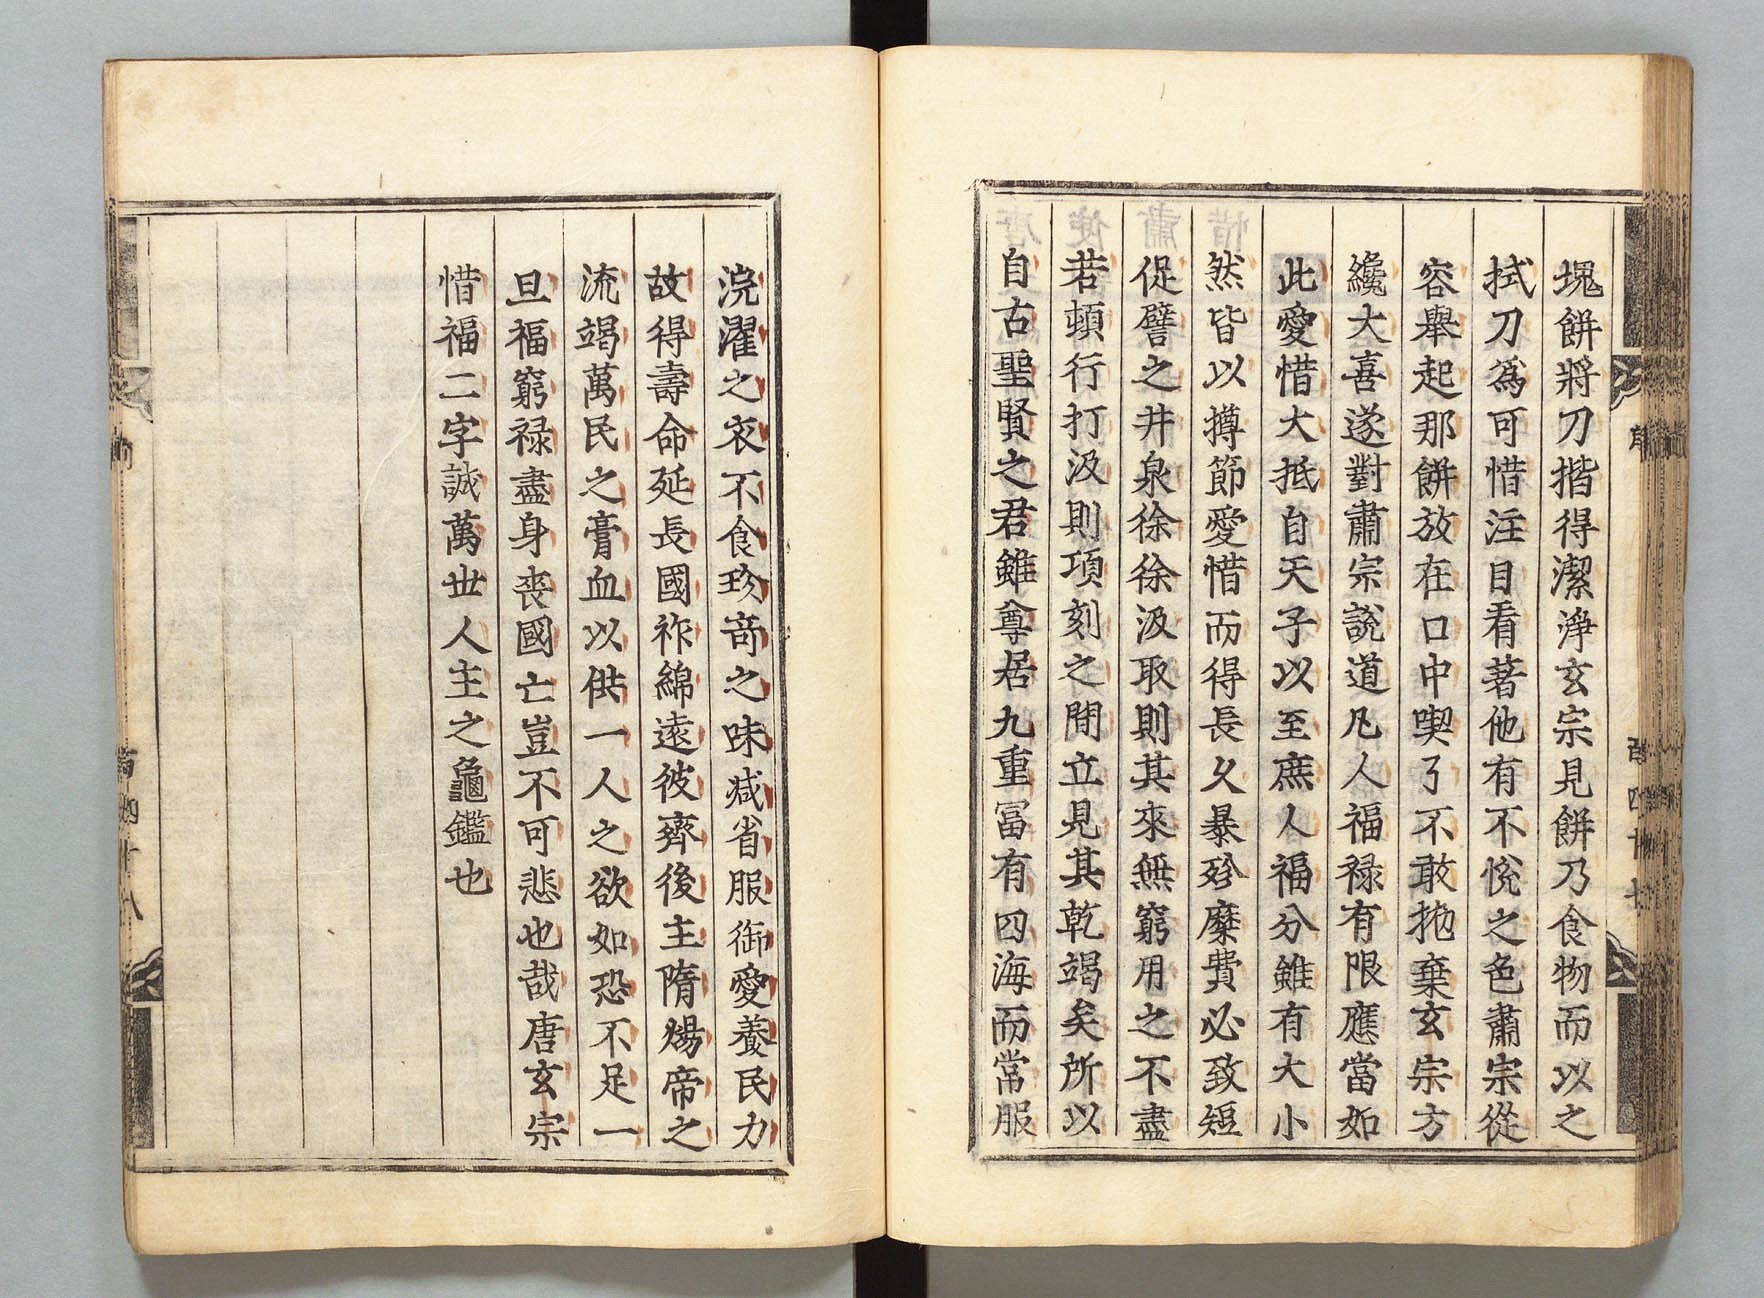 塊餅將刀揩得潔淨玄宗見餅乃食物而以之
拭刀爲可惜注目看著他有不悅之色肅宗從
容舉起那餅放在口中喫了不敢抛棄玄宗方
纔大喜遂對肅宗說道凡人福禄有限應當如
此愛惜大抵自天子以至庶人福分雖有大小
然皆以撙節愛惜而得長久暴殄糜費必致短
促譬之井泉徐徐汲取則其來無窮用之不盡
若頓行打汲則項刻之間立見其乾竭矣所以
自古聖賢之君雖尊居九重冨有四海而常服
浣濯之衣不食珍竒之味减省服御愛養民力
故得壽命延長國祚綿遠彼齊後主隋煬帝之
流竭萬民之膏血以供一人之欲如恐不足一
旦福窮禄盡身喪國亡豈不可悲也哉唐玄宗
惜福二字誠萬世人主之龜鑑也
百四十七
百四十八